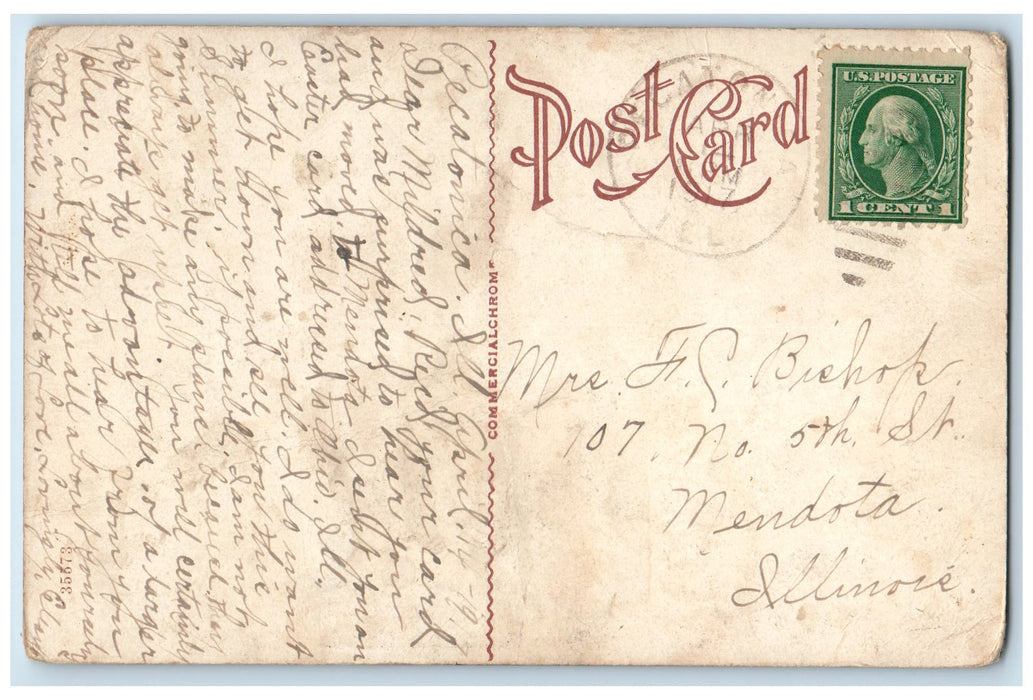 Post Card
U.S. POSTAGE
1 CENT 1
ILL
COMMERCIALCHROME
35573
Mrs. F. C. Bishop.
107. No. 5th. St.
Mendota.
Illinois.
Pecatonica. Ill. April.
Dear Mildred, Rec'd your card
and was surprised to hear you
had moved to Mendota I sent you an
Easter card addressed to
I hope you are well. I do want
to get down and see you this
Summer, if possible, I am not
going to make any plans
You will certainly
appreciate the advantages of a larger
place. I hope to hear from you
soon. and tell me all about yourself